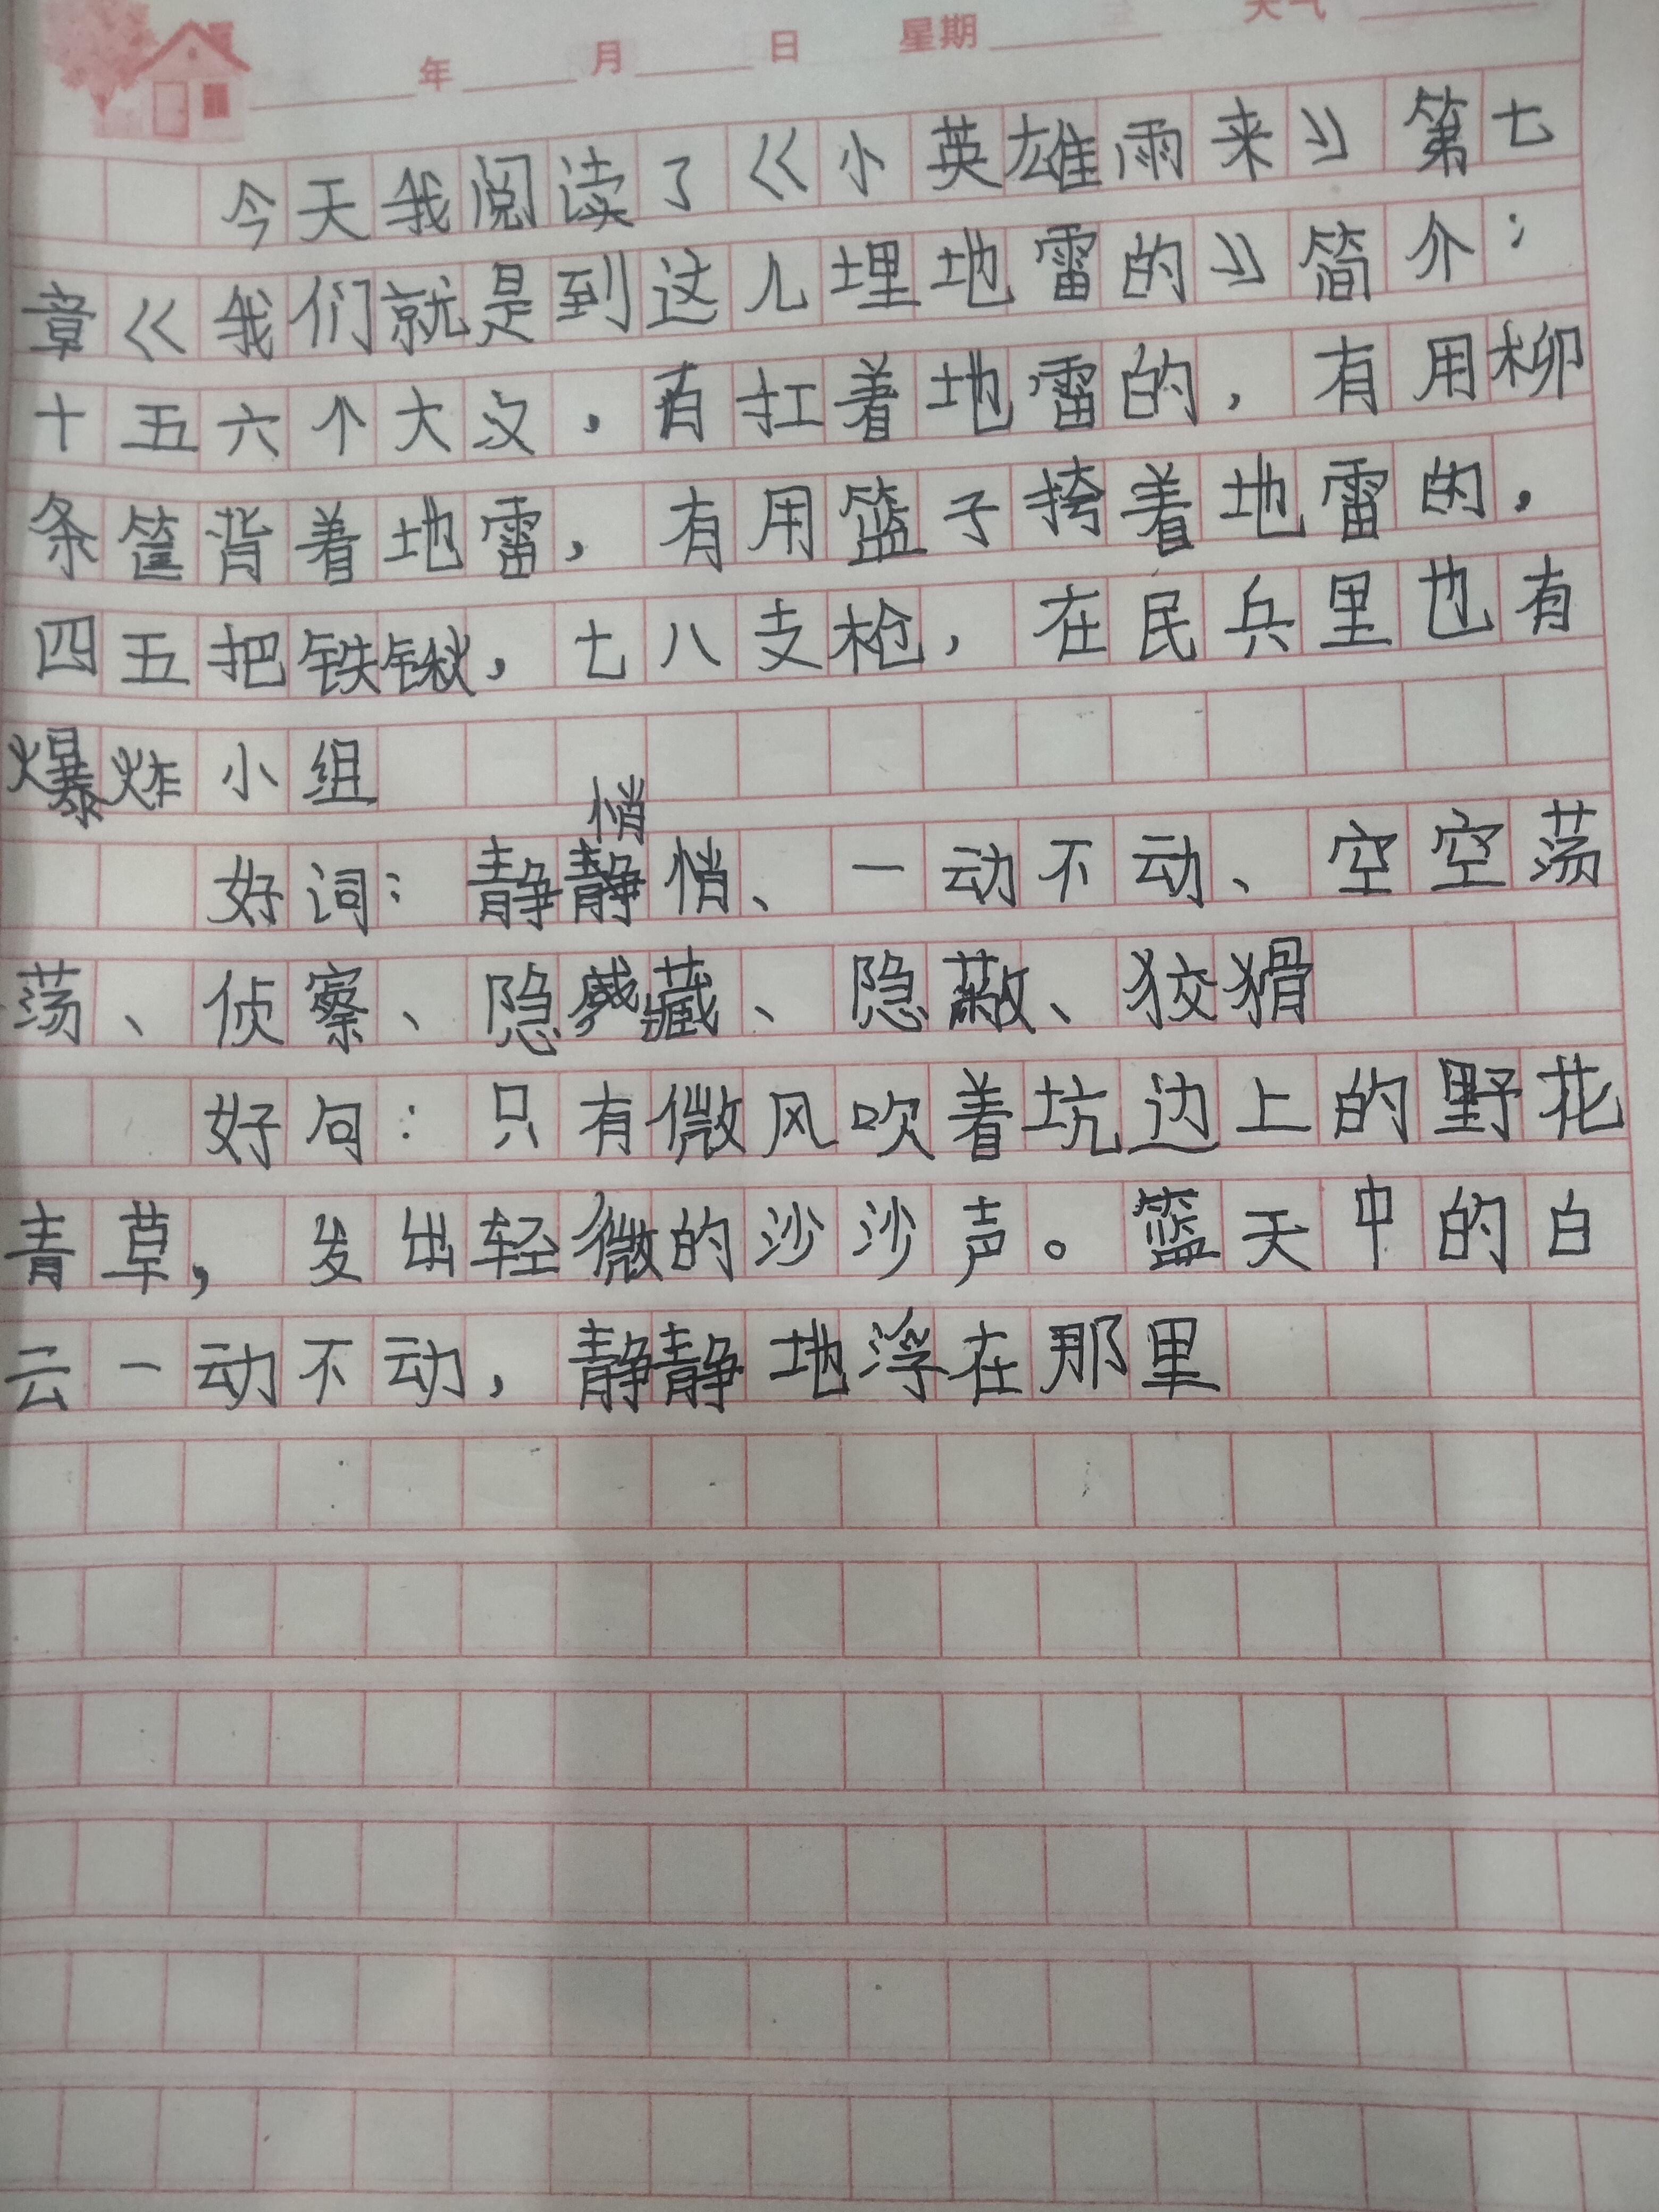 年 月 日 星期 天气
今天我阅读了《小英雄雨来》第七
章《我们就是到这儿埋地雷的》简介：
十五六个大汉，有扛着地雷的，有用柳
条筐背着地雷，有用篮子挎着地雷的，
四五把铁锹，七八支枪，在民兵里也有
爆炸小组
悄
好词：静静悄、一动不动、空空荡
荡、侦察、隐藏、隐蔽、狡猾
好句：只有微风吹着坑边上的野花
青草，发出轻微的沙沙声。篮天中的白
云一动不动，静静地浮在那里